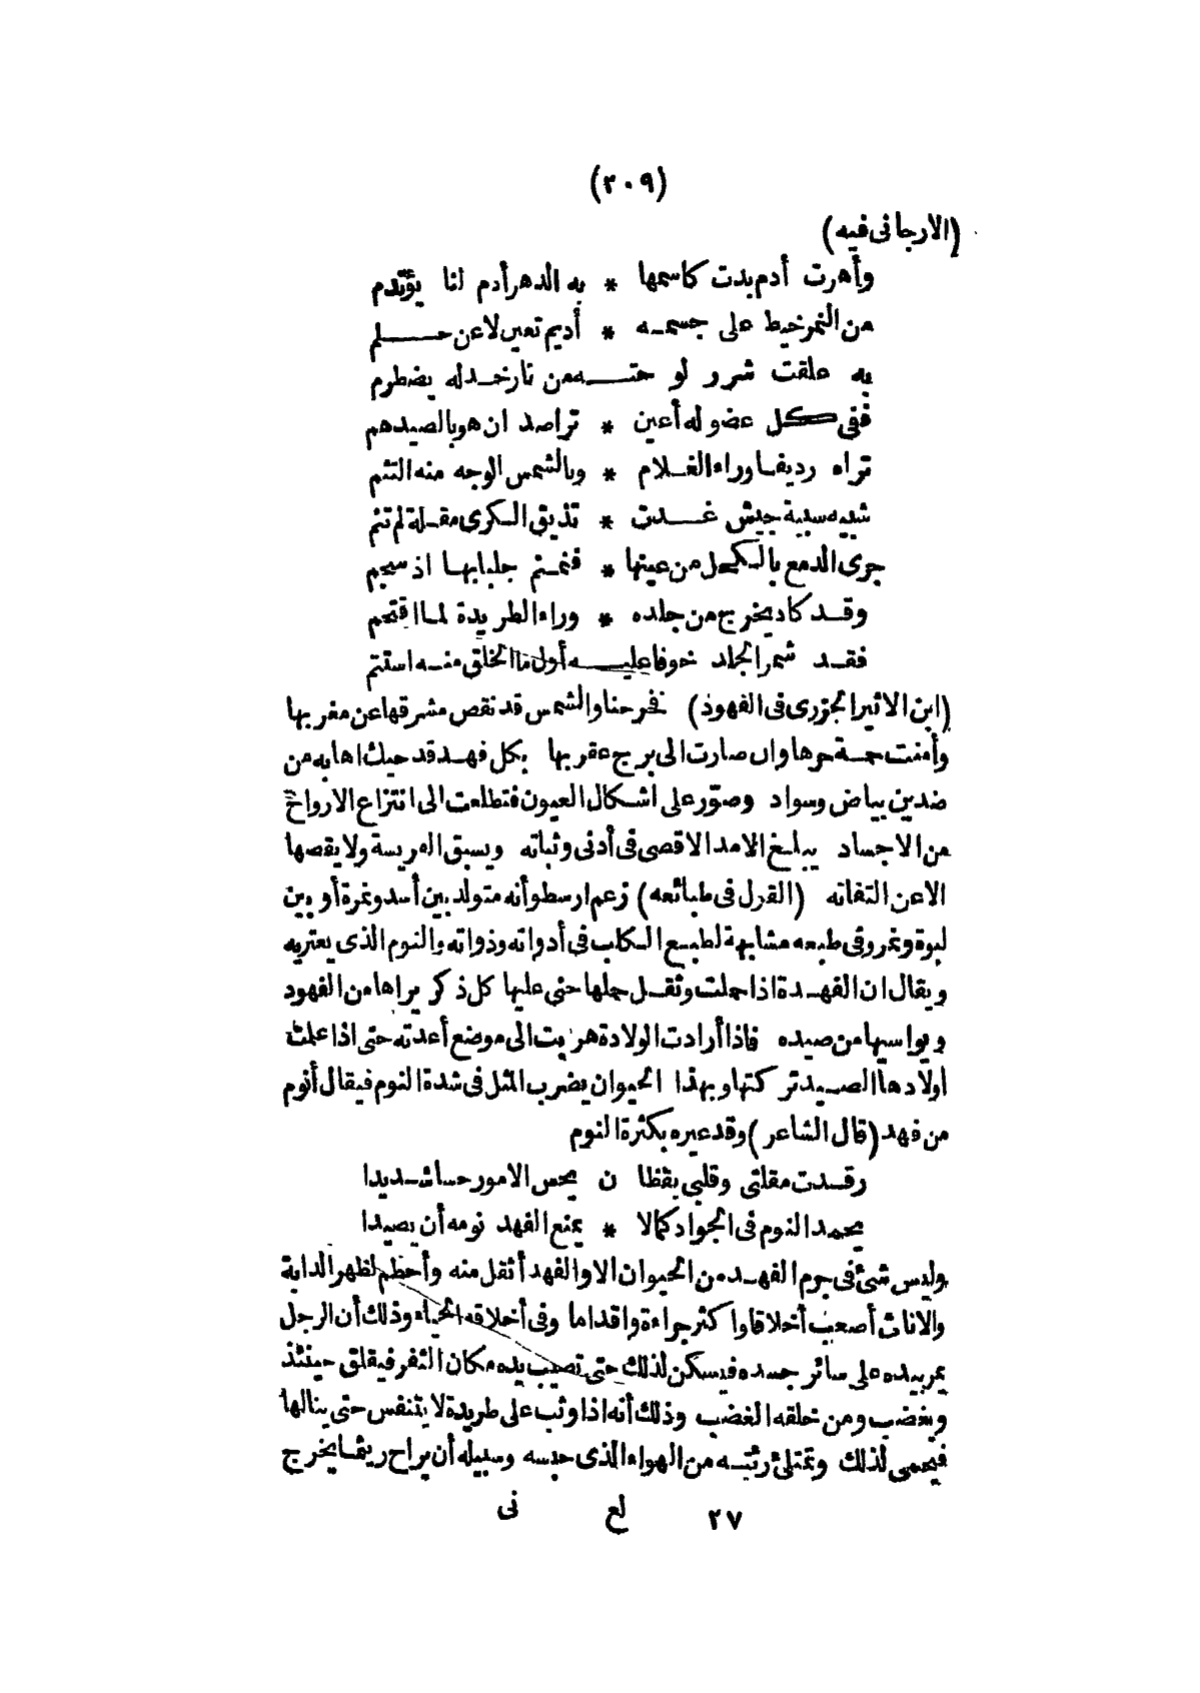 (٢٠٩)
(الارجانى فيه)
وأهرت أدم بدت كاسمها * به الدهر أدم لنا يؤتدم
من النمر خيط على جسمه * أديم تعين لا عن حلم
به علقت شرر لو حته من نار خد له يضطرم
ففى كل عضو له أعين * تراصد ان هو بالصيد هم
تراه رديفا وراء الغلام * وبالشمس الوجه منه التثم
شبيه سبية جيش غدت * تذيق الكرى مقلة لم تنم
جرى الدمع بالكحل من عينها * فنمنم جلبابها اذ سجم
وقد كاد يخرج من جلده * وراء الطريدة لما اقتحم
فقد شمر الجلد خوفا عليه أول ما الخلق منه استتم
(ابن الاثير الجزرى فى الفهود) فخرجنا والشمس قد نقص مشرقها عن مغربها
وأمنت حمة حرها وان صارت الى برج عقربها بكل فهد قد حيك اهابه من
ضدين بياض وسواد وصوّر على اشكال العيون فتطلعت الى انتزاع الارواح
من الاجساد يبلغ الامد الاقصى فى أدنى وثباته ويسبق الفريسة ولا يقصها
الا عن التفاته (القول فى طبائعه) زعم ارسطو أنه متولد بين أسد ونمرة أو بين
لبوة ونمر وفى طبعه مشابهة لطبع الكلب فى أدواته وذواته والنوم الذى يعتريه
ويقال ان الفهدة اذا حملت وثقل حملها حنى عليها كل ذكر يراها من الفهود
ويواسيها من صيده فاذا أرادت الولادة هربت الى موضع أعدته حتى اذا علمت
اولادها الصيد تركتها وبهذا الحيوان يضرب المثل فى شدة النوم فيقال أنوم
من فهد (قال الشاعر) وقد عيره بكثرة النوم
رقدت مقلتى وقلبى يقظا ن يحس الامور حسا شديدا
يحمد النوم فى الجواد كمالا * يمنع الفهد نومه أن يصيدا
وليس شئ فى جرم الفهد من الحيوان الا والفهد أثقل منه وأحطم لظهر الدابة
والاناث أصعب أخلاقا واكثر جراءة واقداما وفى أخلاقه الحياء وذلك أن الرجل
يمر بيده على سائر جسده فيسكن لذلك حتى تصيب يده مكان الثفر فيقلق حينئذ
ويغضب ومن خلقه الغضب وذلك أنه اذا وثب على طريدة لا يتنفس حتى ينالها
فيحمى لذلك وتمتلئ رئته من الهواء الذى حبسه وسبيله أن يراح ريثما يخرج
٢٧ لع نى